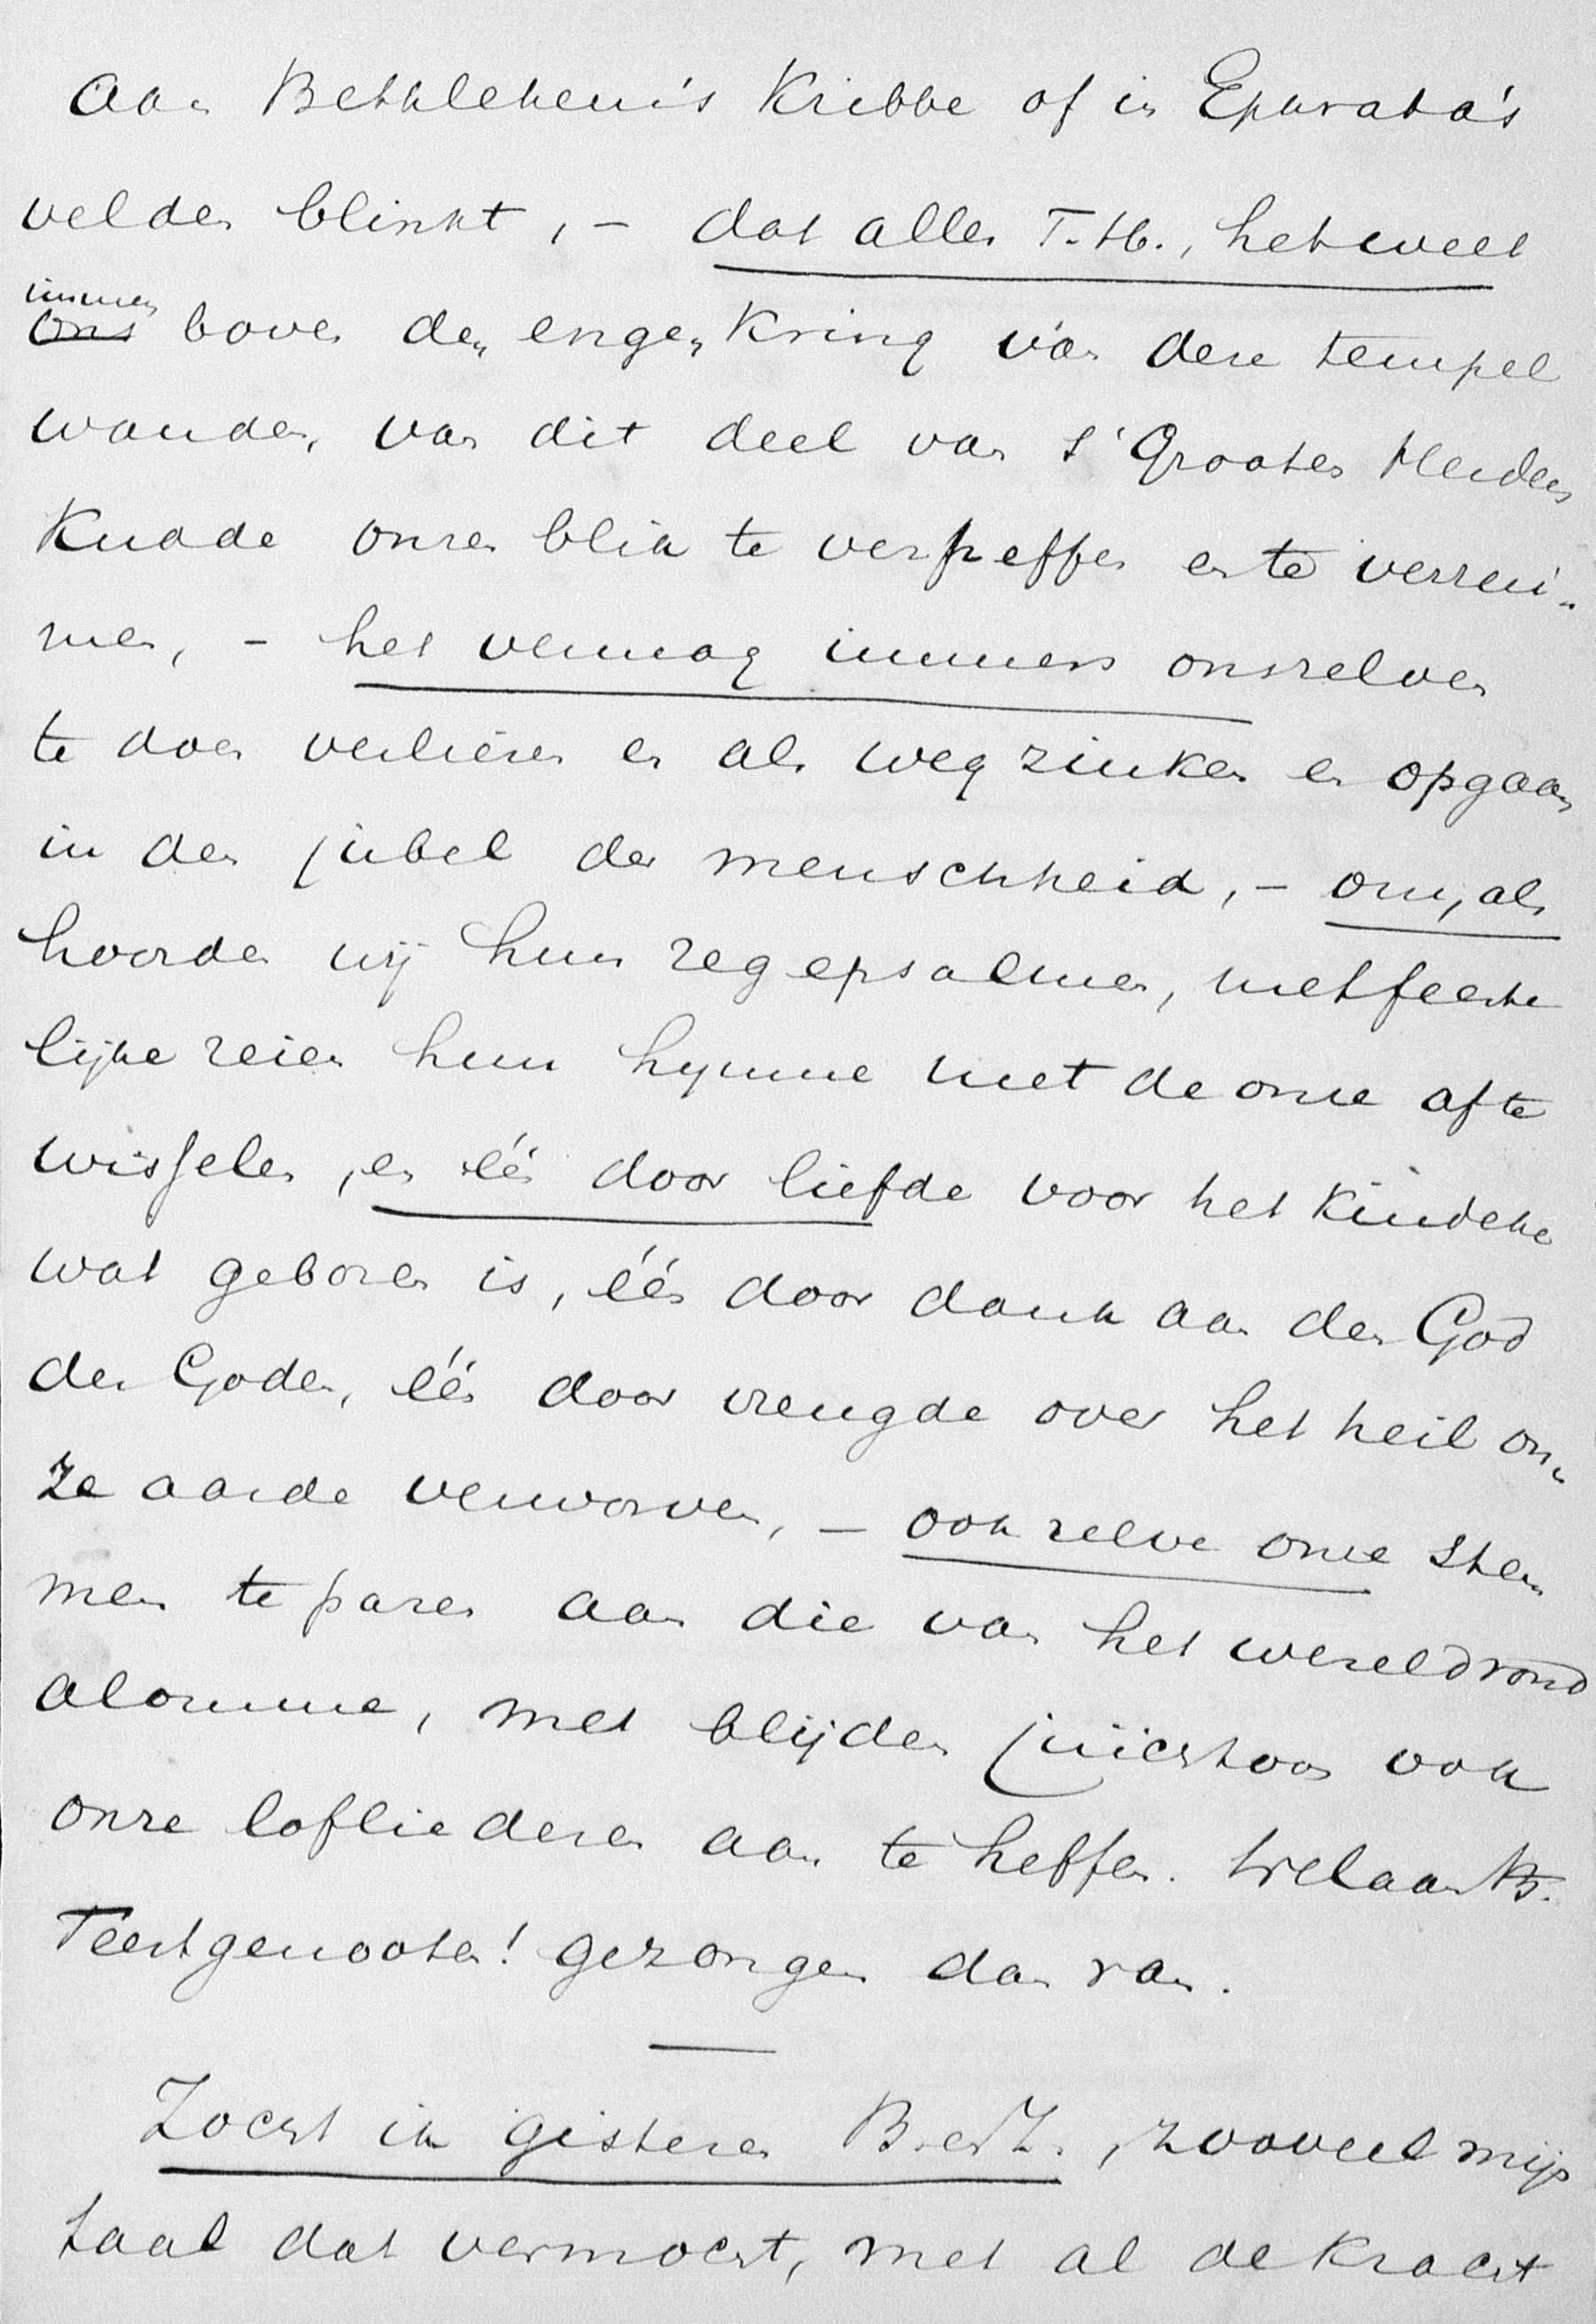 aan Bethlehem's Kribbe of in Ephrata's
velden blinkt, - dat alles T. H., het weet
immers
ons boven den engen Kring van deze tempel
wanden, van dit deel van 's Grooten Herders
Kudde onzen blik te verheffen en te verrui-
men, - het vermag immers onszelven
te doen verliezen en als weg zinken en opgaan
in den jubel der menschheid, - om, als
hoorden wij hun zegepsalmen, met feeste
lijke reien hun hymne met de onze af te
wisselen, en één door liefde voor het Kindeke
wat geboren is, één door dank aan den God
der Goden, één door vreugde over het heil on-
ze aarde verworven, - ook zelve onze stem
men te paren aan die van het wereldrond
alomme, met blijden juichtoon ook
onze lofliederen aan te heffen. Welaan
Feestgenooten! gezongen dan van.
Zocht ik gisteren B. en Z., zooveel mijn
taal dat vermocht, met al de Kracht